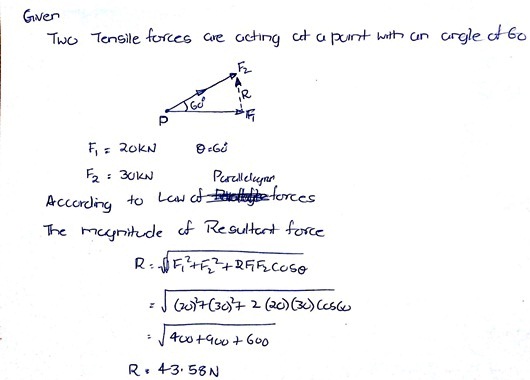 Given
Two Tensile forces are acting at a point with an angle of 60
F₂
R
60°
P
F₁
F₁ = 20KN θ=60°
F₂ = 30KN Parallelogram
According to Law of forces
The magnitude of Resultant force
R = √F₁²+F₂²+2F₁F₂cosθ
= √(20)²+(30)²+2(20)(30)cos60
= √400+900+600
R = 43.58N